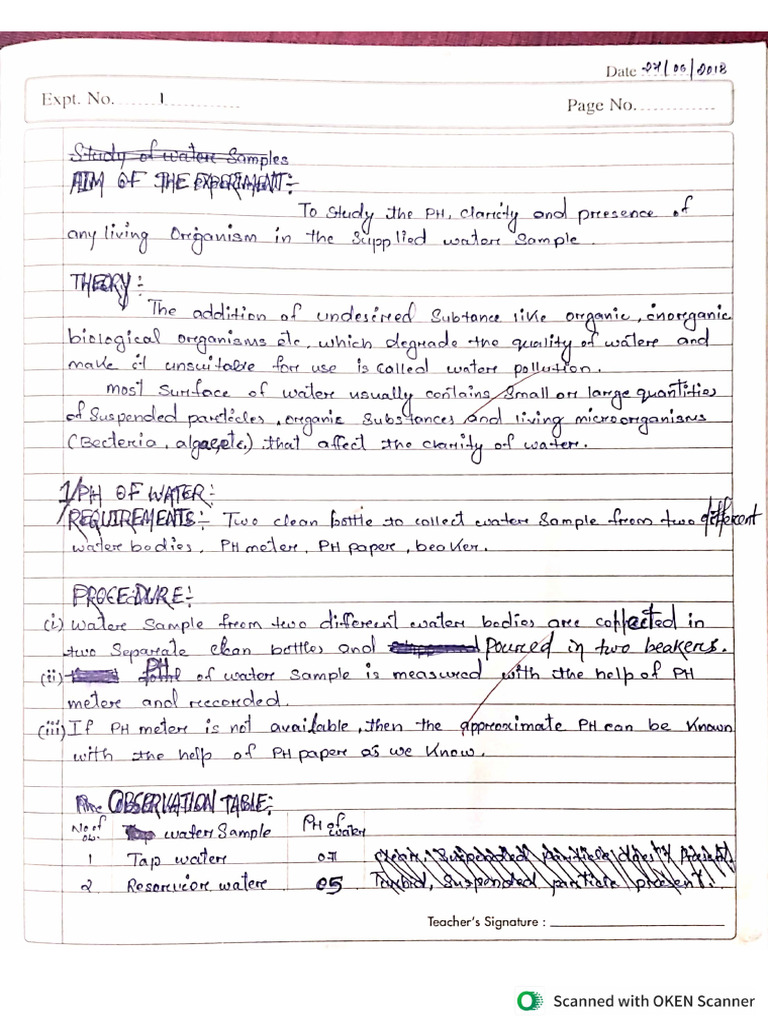 Date 27/06/2018
Expt. No. 1
Page No.
Study of water Samples
AIM OF THE EXPERIMENT:-
To study the PH, clarity and presence of
any living Organism in the Supplied water Sample.
THEORY:-
The addition of undesired Substance like organic, inorganic
biological organisms etc, which degrade the quality of water and
make it unsuitable for use is called water pollution.
most Surface of water usually contains Small or large quantities
of Suspended particles, organic Substances and living microorganisms
(Becteria, algae,etc,) that affect the clarity of water.
1/PH OF WATER:-
REQUIREMENTS:- Two clean bottle to collect water Sample from two different
water bodies, PH meter, PH paper, beaker.
PROCEDURE:-
(i) Water Sample from two different water bodies are collected in
two Separate clean bottles and Poured in two beakers.
(ii) PH of water Sample is measured with the help of PH
meter and recorded.
(iii) If PH meter is not available, then the approximate PH can be Known
with the help of PH paper as we Know.
OBSERVATION TABLE:-
No of ob. water Sample PH of water
1 Tap water 07 Clear, Suspended particle present
2 Reservior water 05 Turbid, Suspended particle present.
Teacher's Signature :
Scanned with OKEN Scanner